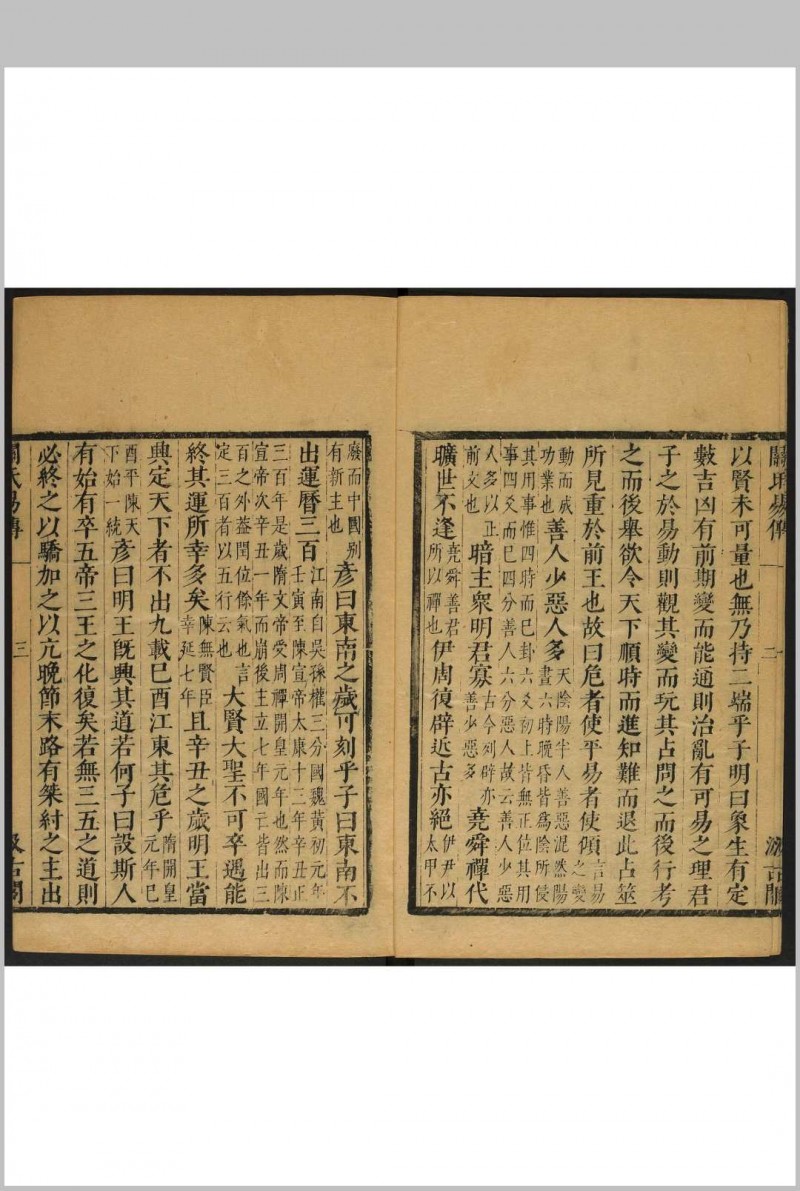 關氏易傳 二 汲古閣
以賢未可量也無乃持二端乎子明曰象生有定
數吉凶有前期變而能通則治亂有可易之理君
子之於易動則觀其變而玩其占問之而後行考
之而後舉欲令天下順時而進知難而退此占筮
所見重於前王也故曰危者使平易者使傾言易之變
動而成功業也善人少惡人多天陰陽半人善惡混然陽晝六時職昏皆爲陰所侵
其用事惟四時而已卦六爻初上皆無正位其用事四爻而已四分善人六分惡人故云善人少惡
人多以正前文也暗主衆明君寡古今列辟亦善少惡多堯舜禪代
曠世不逢堯舜善君所以禪也伊周復辟近古亦絕伊尹以太甲不
廢而中國別有新主也彦曰東南之歲可刻乎子曰東南不
出運曆三百江南自吳孫權三分國魏黃初元年壬寅至陳宣帝太康十三年辛丑正
三百年是歲隋文帝受周禪開皇元年也然而陳宣帝次辛丑一年而崩後主立七年國亡皆出三
百之外葢閏位餘氣也言定三百者以五行云也大賢大聖不可卒遇能
終其運所幸多矣陳無賢臣幸延七年且辛丑之歲明王當
興定天下者不出九載巳酉江東其危乎隋開皇元年巳
酉平陳天下始一統彦曰明王旣興其道若何子曰設斯人
有始有卒五帝三王之化復矣若無三五之道則
必終之以驕加之以亢晚節末路有桀紂之主出
關氏易傳 三 汲古閣